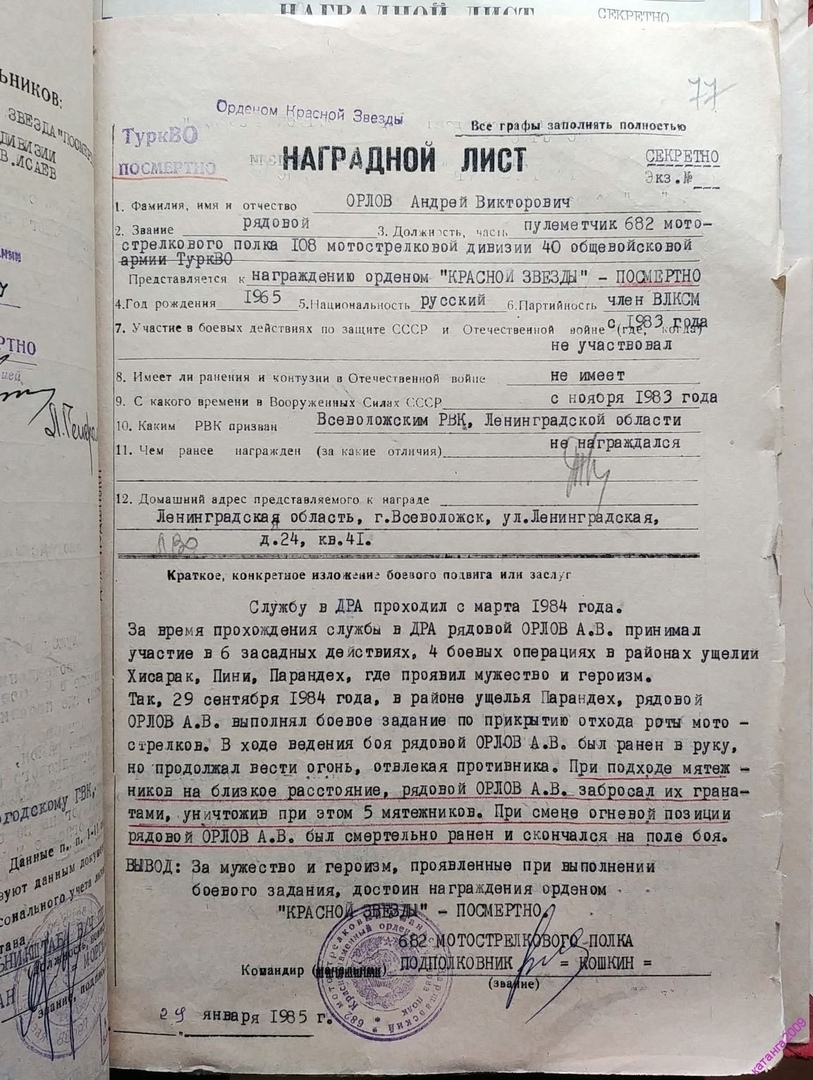 НАГРАДНОЙ ЛИСТ
СЕКРЕТНО
77
Орденом Красной Звезды
ТуркВО
ПОСМЕРТНО
Все графы заполнять полностью
НАГРАДНОЙ ЛИСТ
СЕКРЕТНО
Экз.№
1. Фамилия, имя и отчество ОРЛОВ Андрей Викторович
2. Звание рядовой 3. Должность, часть пулеметчик 682 мото-
стрелкового полка 108 мотострелковой дивизии 40 общевойсковой
армии ТуркВО
Представляется к награждению орденом "КРАСНОЙ ЗВЕЗДЫ" - ПОСМЕРТНО
4.Год рождения 1965 5.Национальность русский 6.Партийность член ВЛКСМ
с 1983 года
7. Участие в боевых действиях по защите СССР и Отечественной войне (где, когда)
не участвовал
8. Имеет ли ранения и контузии в Отечественной войне не имеет
9. С какого времени в Вооруженных Силах СССР с ноября 1983 года
10. Каким РВК призван Всеволожским РВК, Ленинградской области
11. Чем ранее награжден (за какие отличия) не награждался
12. Домашний адрес представляемого к награде
Ленинградская область, г.Всеволожск, ул.Ленинградская,
ЛВО д.24, кв.41.
Краткое, конкретное изложение боевого подвига или заслуг
Службу в ДРА проходил с марта 1984 года.
За время прохождения службы в ДРА рядовой ОРЛОВ А.В. принимал
участие в 6 засадных действиях, 4 боевых операциях в районах ущелии
Хисарак, Пини, Парандех, где проявил мужество и героизм.
Так, 29 сентября 1984 года, в районе ущелья Парандех, рядовой
ОРЛОВ А.В. выполнял боевое задание по прикрытию отхода роты мото -
стрелков. В ходе ведения боя рядовой ОРЛОВ А.В. был ранен в руку,
но продолжал вести огонь, отвлекая противника. При подходе мятеж -
ников на близкое расстояние, рядовой ОРЛОВ А.В. забросал их грана-
тами, уничтожив при этом 5 мятежников. При смене огневой позиции
рядовой ОРЛОВ А.В. был смертельно ранен и скончался на поле боя.
ВЫВОД: За мужество и героизм, проявленные при выполнении
боевого задания, достоин награждения орденом
"КРАСНОЙ ЗВЕЗДЫ" - ПОСМЕРТНО.
682 МОТОСТРЕЛКОВОГО ПОЛКА
Командир ПОДПОЛКОВНИК = КОШКИН =
(звание)
29 января 1985 г.
катанга2009